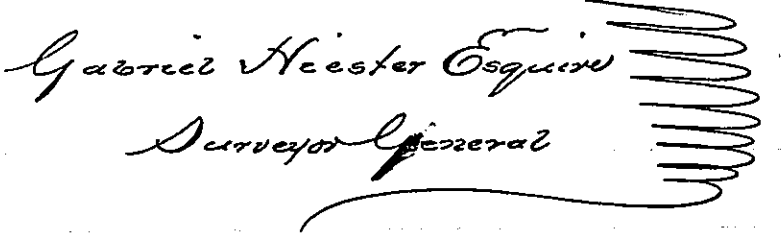 Gabriel Hiester Esquire
Surveyor General